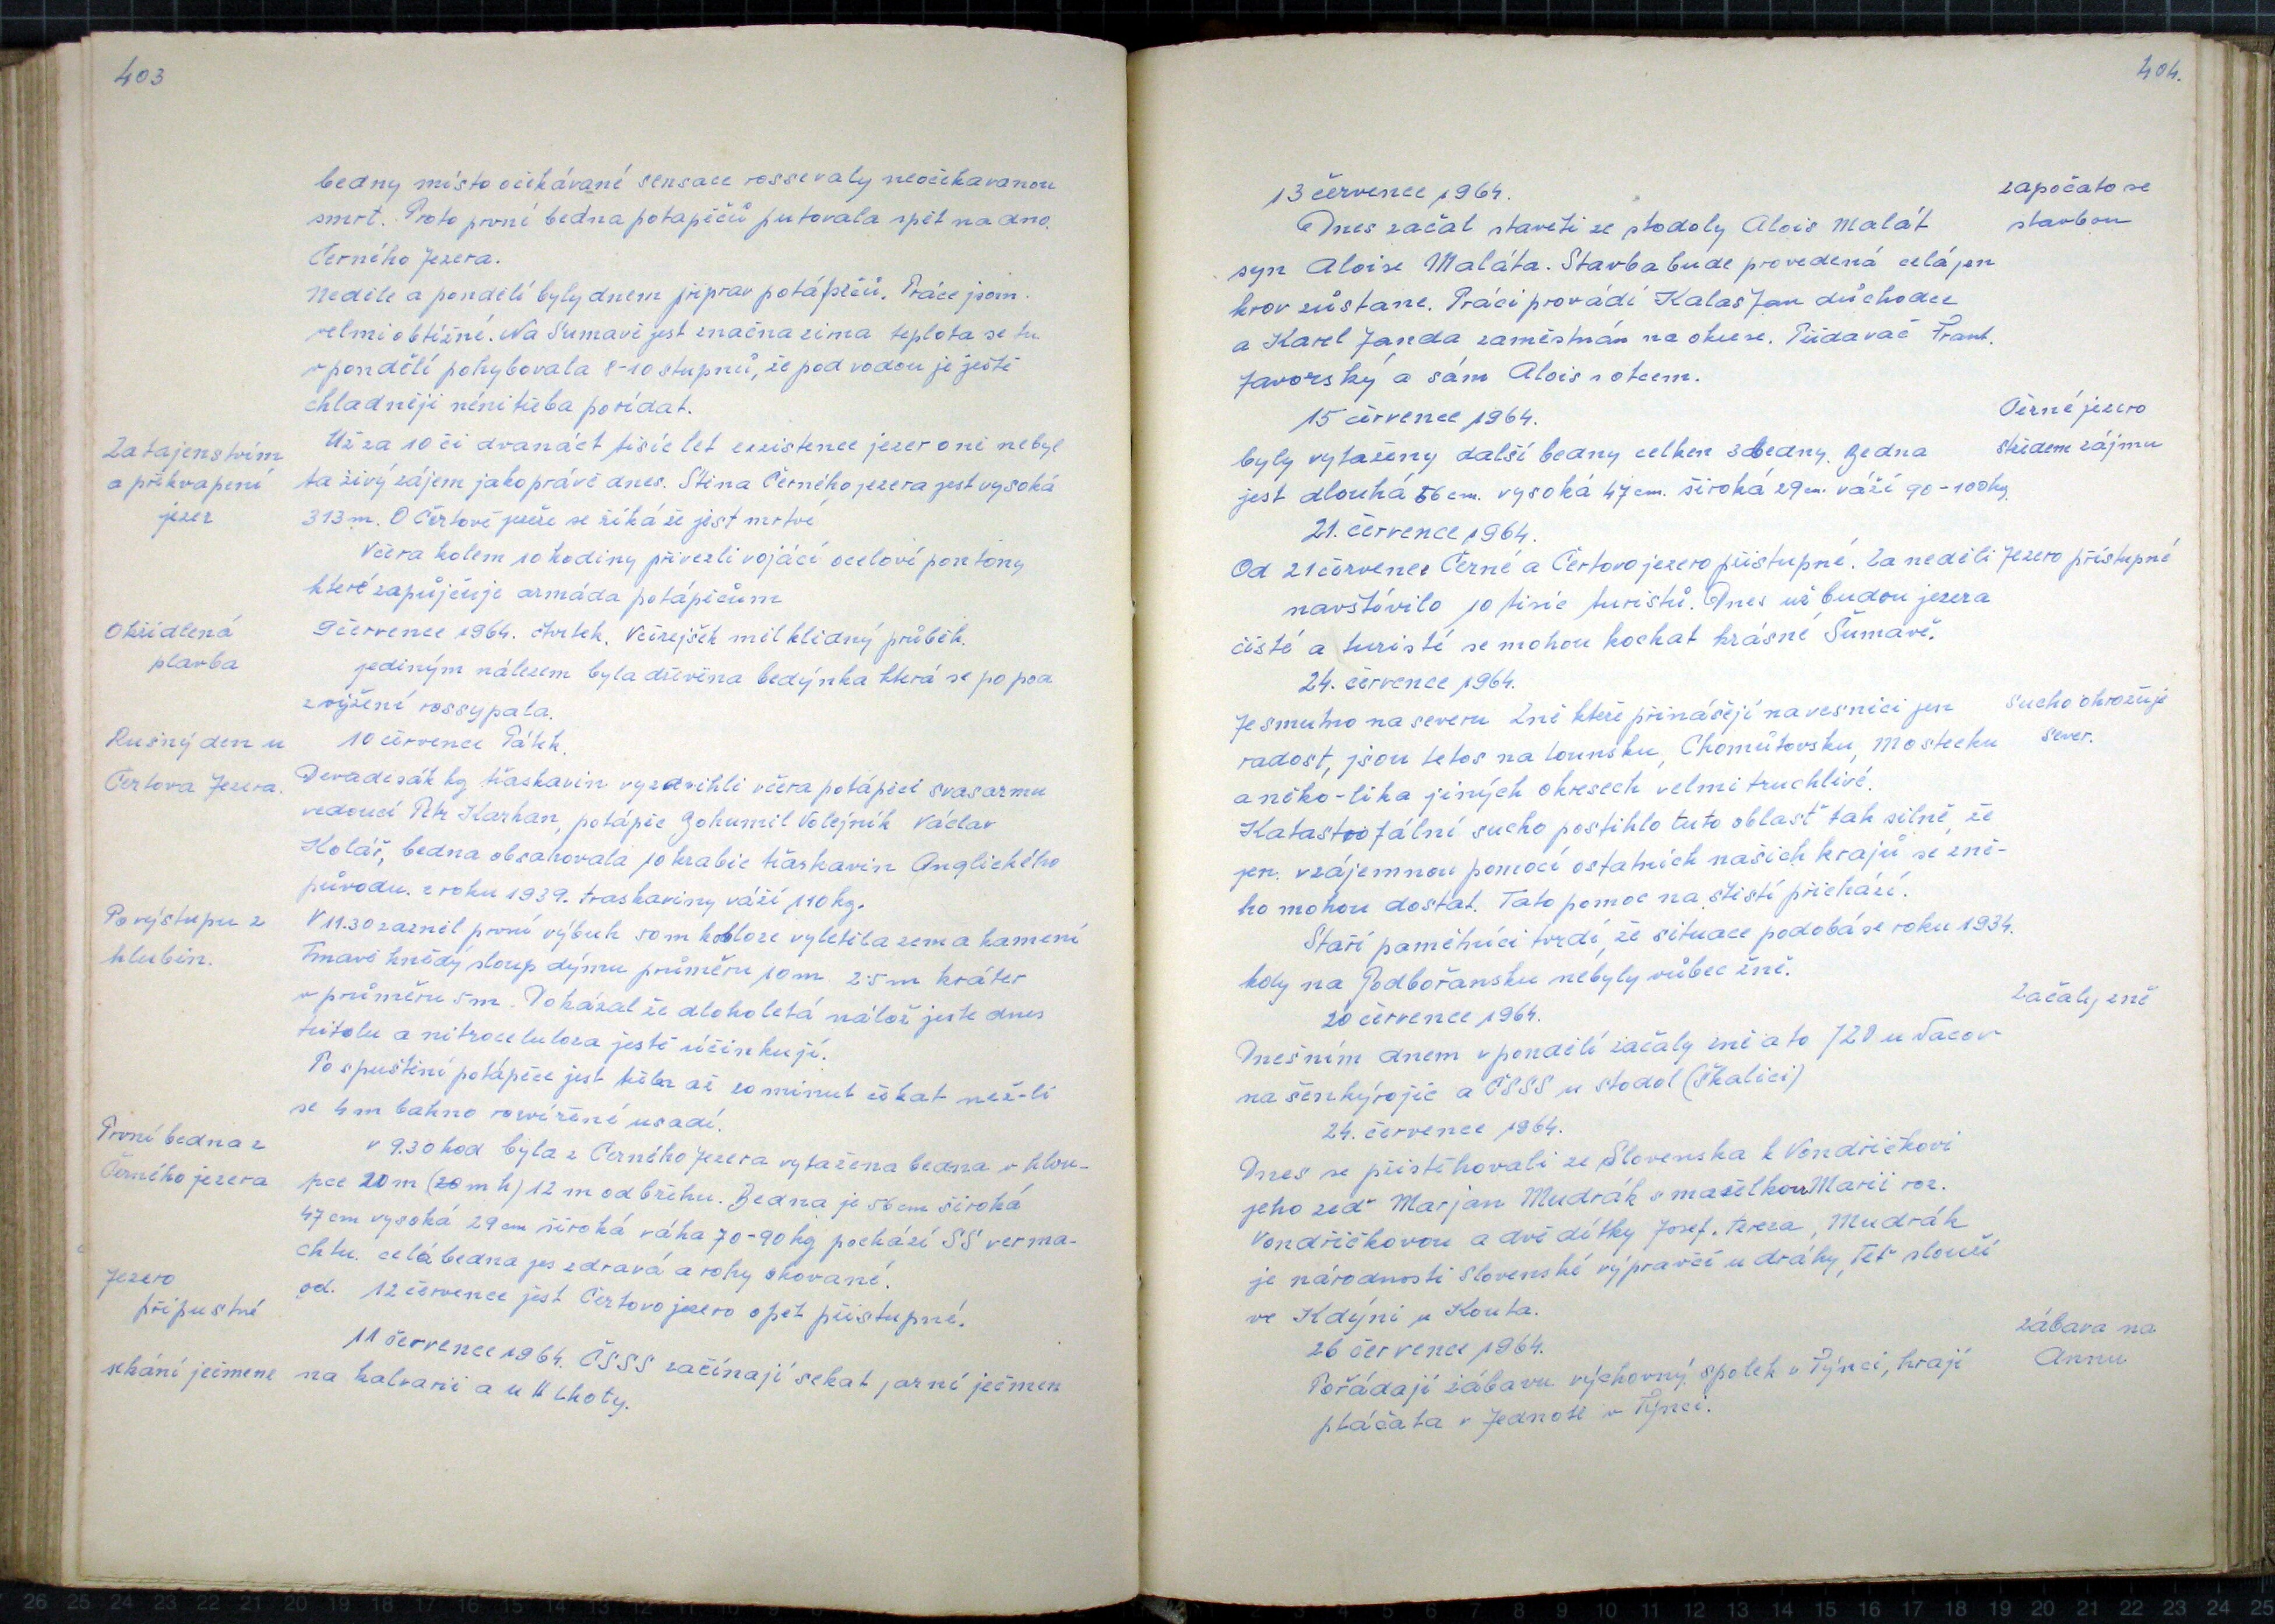 403
bedny místo očekávané sensace rossevaly neočekavanou
smrt. Proto první bedna potapěčů putovala zpět na dno
Černého Jezera.
Neděle a pondělí byly dnem příprav potápěčů. Práce jsou
velmi obtížné. Na Šumavě jest značna zima teplota se tu
v pondělí pohybovala 8-10 stupnů, že pod vodou je ještě
chladněji néni třeba porídat.
Za tajenstvím
a překvapení
jezer
Už za 10 či dvanáct tisíc let exsistence jezer o ně nebyl
ta živý zájem jako právě dnes. Stěna Černého jezera jest vysoká
313 m. O Čertově jezeře se říká že jest mrtvé
Včera kolem 10 hodiny přivezli vojácí oceloví pontóny
které zapůjčuje armáda potápěčům
Okřídlená
plavba
9 července 1964. čtvrtek. Včerejšek měl klidný průběh.
jediným nálezem byla dřevěna bedýnka která se po poa
zvýžení rossypala.
Rušný den u
Čertova Jezera.
10 července Pátek.
Devadisák kg třaskavin vyzdvihli včera potápěči svasarmu
vedoucí Petr Karhan, potápěč Bohumil Volejník Václav
Kolář, bedna obsahovala 10 krabic třaskavin Anglického
původu. z roku 1939. traskaviny váží 110 kg.
Po výstupu z
hlubin.
V 11.30 zazněl první výbuh 50 m k obloze vyletěla zem a kamení
Tmavě hnědý sloup dýmu průměru 10 m 2.5 m kráter
v průměru 5 m. Dokázal že dloholetá nálož ješte dnes
tritolu a nitroceluloza ještě účinkují.
Po spuštění potápěče jest třeba až 20 minut čekat než-li
se 4 m bahno rozvířené usadí.
První bedna z
Černého jezera
v 9.30 hod byla z Černého Jezera vytažena bedna v hlou-
pce 20 m (20 m h) 12 m od břehu. Bedna je 56 cm široká
47 cm vysoká 29 cm široká váha 70-90 kg pochází SS verma-
chtu. celá bedna jes zdravá a rohy okované.
Jezero
přípustné
od. 12 července jest Čertovo jezero opět přístupné.
sekání ječmene
11 července 1964. ČSSS začínají sekat jarní ječmen
na kalvarii a u II Lhoty.
404.
13 července 1964.
započato se
stavbou
Dnes začal stavěti ze stodoly Alois Malát
syn Aloise Maláta. Stavba bude provedená celá jen
krov zůstane. Práci provádí Kalas Jan důchodce
a Karel Janda zaměstnán na okrese. Přidavač Frant.
Javorský a sám Alois s otcem.
15 července 1964.
Černé jezero
středem zájmu
byly vytaženy další bedny celkem 3 bedny. Bedna
jest dlouhá 56 cm. vysoká 47 cm. široká 29 cm. váží 90-100 kg.
21. července 1964.
Od 21 července Černé a Čertovo jezero přístupné. Za neděli
Jezero přístupné
navštívilo 10 tisíc turistů. Dnes už budou jezera
čisté a turisté se mohou kochat krásné Šumavě.
24. července 1964.
Je smutno na severu žně kteře přinášejí na vesnici jen
sucho ohrožuje
sever.
radost, jsou letos na Lounsku, Chomůtovsku, Mostecku
a něko-lika jiných okresech velmi truchlivé.
Katastrofální sucho postihlo tuto oblasť tak silně, že
jen. vzájemnou pomocí ostatních našich krajů se zně-
ho mohou dostat. Tato pomoc na stěstí přichází.
Staří pamětníci tvrdí, že situace podobá se roku 1934.
kdy na Podbořansku nebyly vůbec žně.
20 července 1964.
Začaly zně
Dnešním dnem v pondělí začaly zně a to JZD u Vacov
na šenkýrojic a ČSSS u stodol (Skalici)
24. července 1964.
Dnes se přistěhovali ze Slovenska k Vondřičkovi
jeho zeď Marjan Mudrák s mažélkou Marii roz.
Vondřičkovou a dvě dítky Josef. Tereza, Mudrák
je národnosti Slovenské výpravčí u dráhy, teť slouží
ve Kdýni u Kouta.
26 července 1964.
zábava na
Annu
Pořádají zábavu výchovný spolek v Týnci, hrají
ptáčata v Jednotě v Týnci.